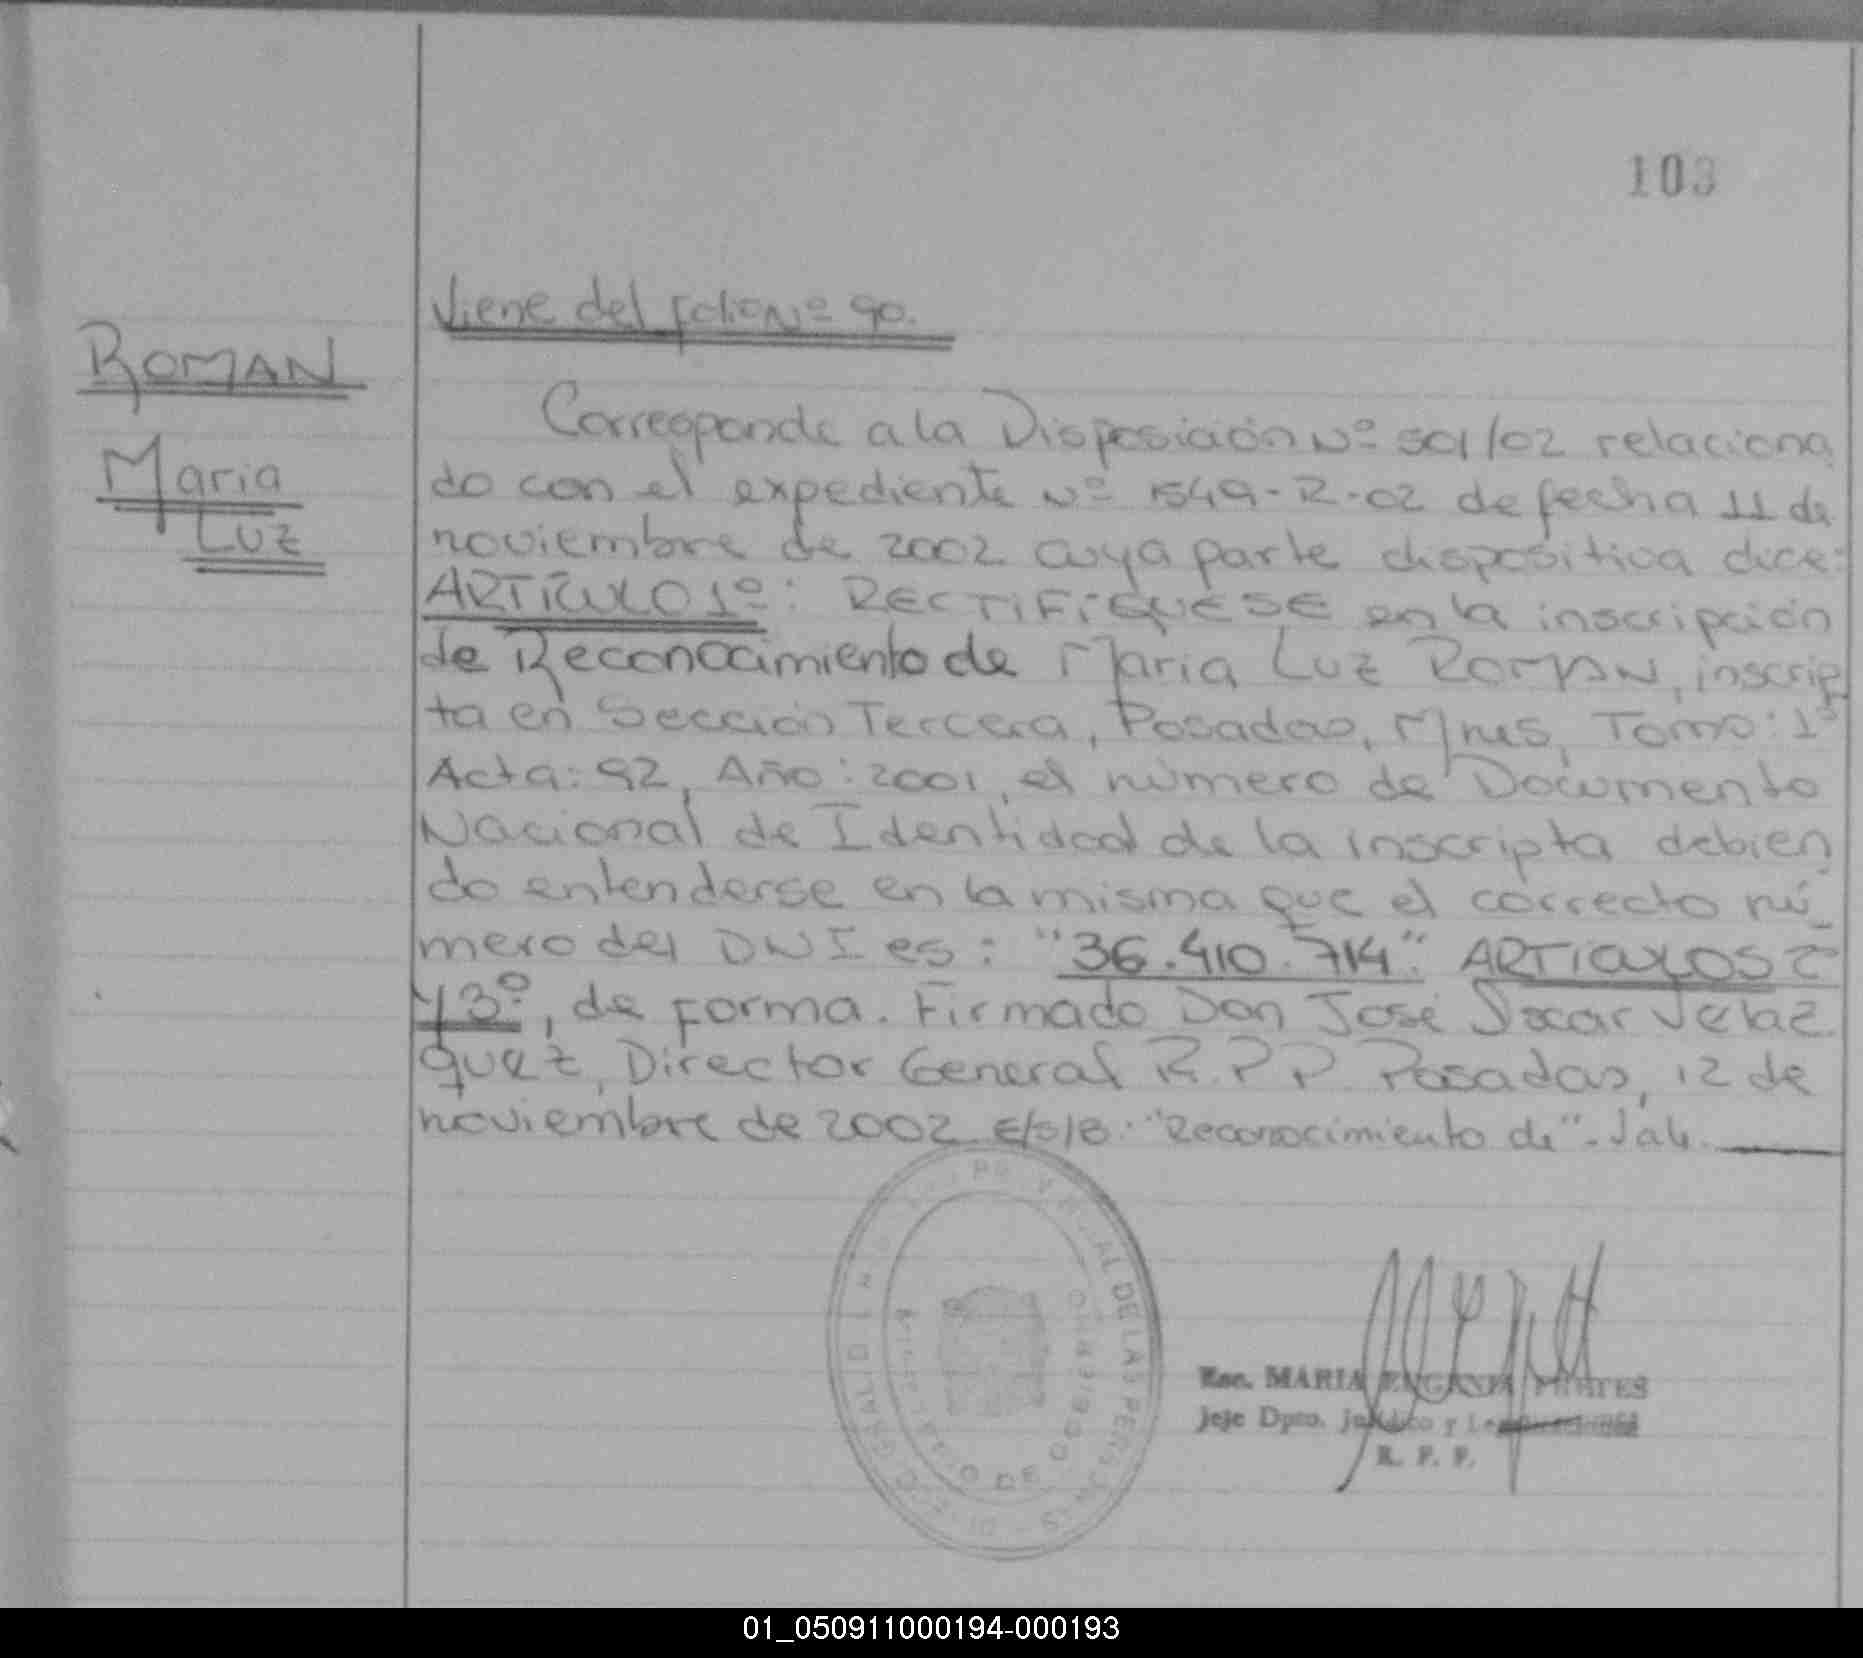 103
Viene del folio Nº 90.
ROMAN
Maria
Luz
Corresponde a la Disposición Nº 501/02 relaciona
do con el expediente Nº 1549-R-02 de fecha 11 de
noviembre de 2002 cuya parte dispositiva dice:
ARTíCULO 1º: RECTIFíQUESE en la inscripción
de Reconocimiento de Maria Luz ROMAN, inscrip
ta en Sección Tercera, Posadas, Mnes, Tomo: 1º
Acta: 92, Año: 2001, el número de Documento
Nacional de Identidad de la inscripta debien
do entenderse en la misma que el correcto nú
mero del DNI es: "36.410.714". ARTICULOS 2º
y 3º, de forma. Firmado Don José Oscar Velaz
quez, Director General R.P.P Posadas, 12 de
noviembre de 2002. E/S/B: "Reconocimiento de". Vale.
AL DE LAS PERSONAS
GOBIERNO
Esc. MARIA EUGENIA
Jefe Dpto. Jurídico y
R. P. P.
01_050911000194-000193